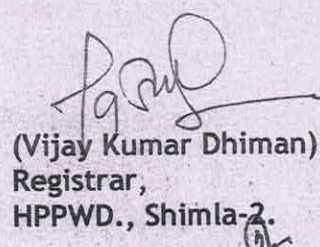 (Vijay Kumar Dhiman)
Registrar,
HPPWD., Shimla-2.